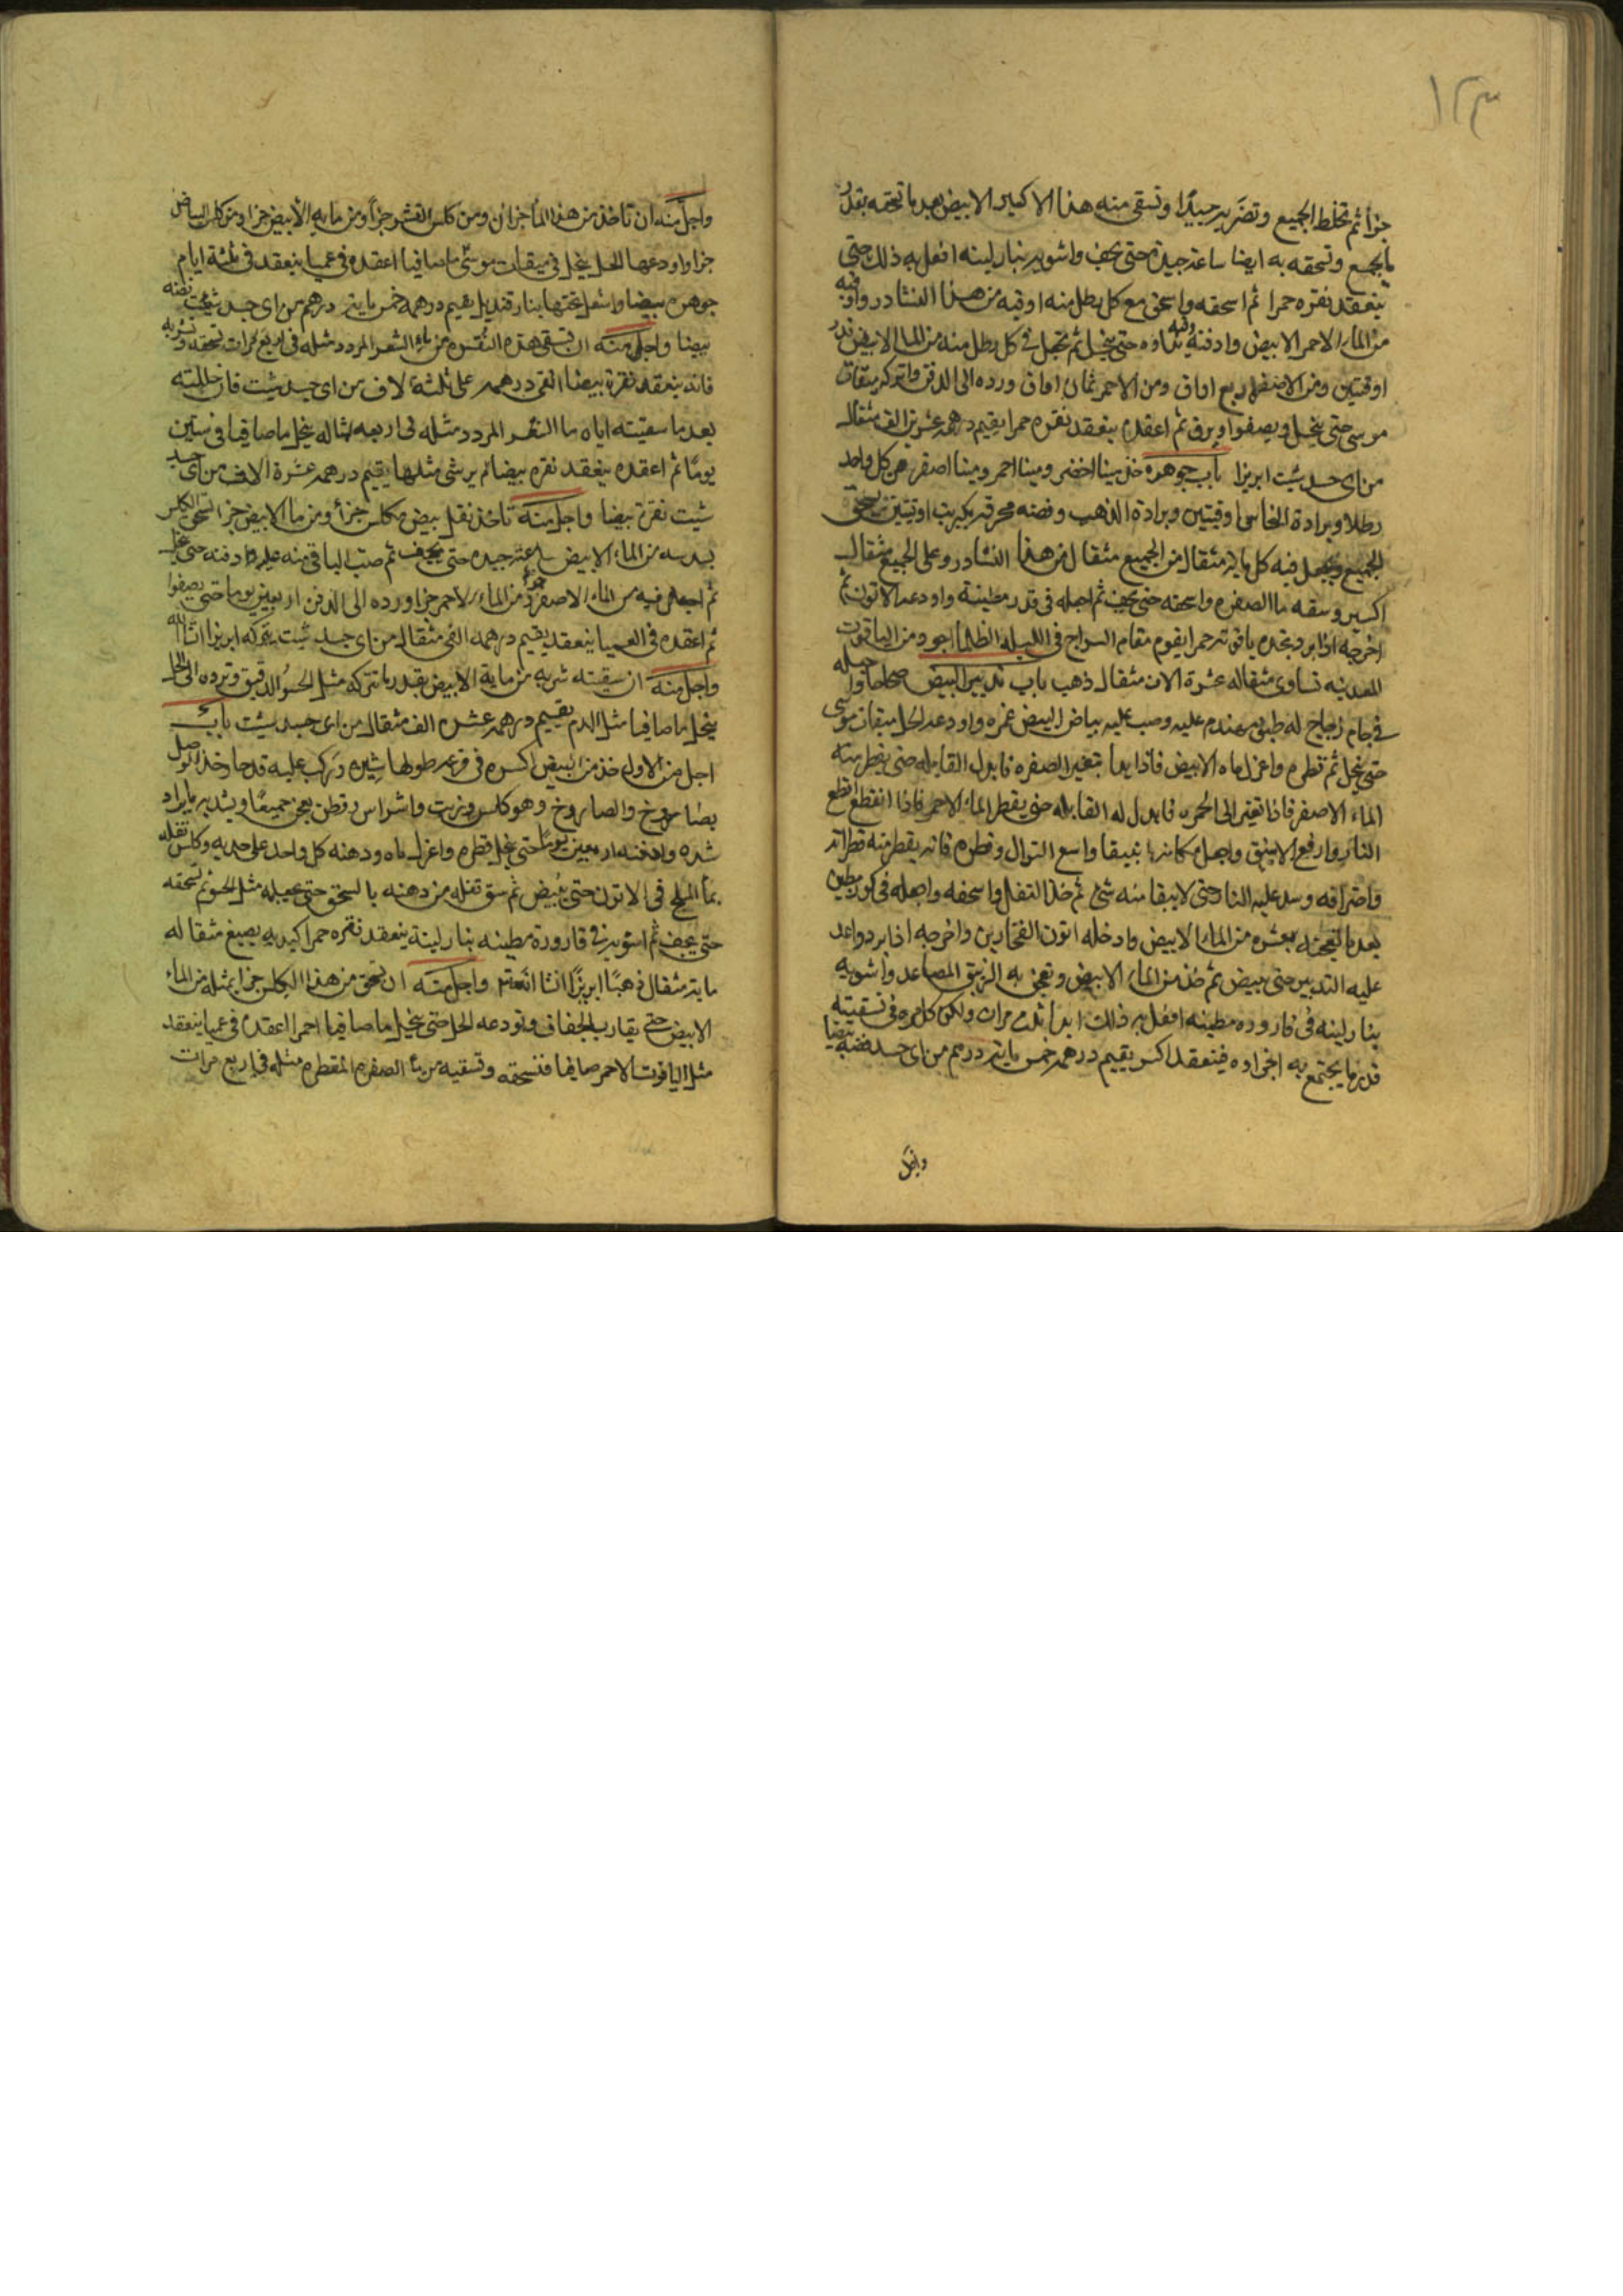 ١٢٣
جزأ ثم تخلط الجميع وتضربه جيدًا وتسقى منه هذا الاكسير الابيض بعد ما تسحقه بقدر
ما يجمع وتسحقه به ايضا ساعة جيدة حتى يجف واشويه بنار لينه افعل به ذلك حتى
ينعقد نقره حمرا ثم اسحقه واسحق مع كل رطل منه اوقيه من هذا النشادر واوقيه
من الماء الاحمر الابيض وادفنه حتى ينحل ثم تجعل فى كل رطل منه من الماء الابيض قدر
اوقيتين ومن الاصفر اربع اواق ومن الاحمر ثمان اواق ورده الى الدفن واتركه ميقات
موسى حتى ينحل ويصفوا ويرق ثم اعقده ينعقد نقره حمرا يقيم درهمه عشرين الف مثقال
من اى جسد شيت ابريزا باب جوهره خذ مينا اخضر ومينا احمر ومينا اصفر من كل واحد
رطلا وبرادة النحاس اوقيتين وبرادة الذهب وفضه محرقه بكبريت اوقيتين تسحق
الجميع وتجعل فيه كل ماية مثقال من الجميع مثقال من هذا النشادر وعلى الجميع مثقال
اكسير وسقه ما الصفره واسحقه حتى يجف ثم اجعله فى قدر مطينة واودعه الاتون ثم
اخرجه اذا برد تجده ياقوته حمرا يقوم مقام السراج فى الليله الظلما اجود من الياقوت
المعدنيه تساوى مثقاله عشرة الاف مثقال ذهب باب تدبير البيض صحاحا واجعله
فى جام زجاج له طبق مهندم عليه وصب عليه بياض البيض غمره واودعه الحل ميقات موسى
حتى ينحل ثم قطره واعزل ماه الابيض فاذا بدا بتغير الصفره فابدل القابله حتى يقطر منه
الماء الاصفر فاذا تغير الى الحمره فابدل له القابله حتى يقطر الماء الاحمر فاذا انقطع اقطع
النار وارفع الانبيق واجعل مكانه انبيقا واسع النوال وقطره فانه يقطر منه قطرانه
واحتراقه وسد عليه النار حتى لا يبقا منه شئ ثم خذ التفل واسحقه واجعله فى كوز مطين
بعد ما تعجنه بعشره من الماء الابيض وادخله اتون الفخارين واخرجه اذا برد واعد
عليه التدبير حتى يبيض ثم خذ من الماء الابيض وتعجن به الزيبق المصاعد واشويه
بنار لينه فى قاروره مطينه افعل به ذلك ابدا ثلث مرات ولكن كل مره فى تسقيته
قدر ما يجتمع به اجزاوه فينعقد اكسير يقيم درهمه خمس مايتة درهم من اى جسد فضة بيضا
واجل
واجل منه ان تاخذ من هذا الماء جزان ومن كلس القشور جزأ ومن مايه الابيض جزا ومن كلس البياض
جزا واودعها الحل ينحل فى ميقات موسى ما صافيا اعقده فى عميا ينعقد فى ثلثة ايام
جوهره بيضا واشعل تحتها بنار قنديل يقيم درهمه خمس مايتة درهم من اى جسد شيت فضه
بيضا واجل منه ان تسقى هذه النقره من ماء الشعر المردد مثله فى اربع مرات تسحقه وتشويه
فانه ينعقد نقرة بيضا القى درهمه على ثلثة الاف من اى جسد شيت فان حللته
بعد ما سقيته اياه ما الشعر المردد مثله فى اربعه امثاله ينحل ما صافيا فى ستين
يوما ثم اعقده ينعقد نقره بيضا لم يرشى مثلها يقيم درهمه عشرة الاف من اى جسد
شيت نقرة بيضا واجل منه تاخذ تفل بيض مكلس جزأ ومن ما الابيض جزا تسحق الكلس
بسدسه من الماء الابيض ساعة جيده حتى يجف ثم صب الباقى منه عليه وادفنه حتى ينحل
ثم اجعل فيه من الماء الاصفر جزأ ومن الماء الاحمر جزا ورده الى الدفن اربعين يوما حتى يصفوا
ثم اعقده فى العميا ينعقد يقيم درهمه الفى مثقال من اى جسد شيت يتركه ابريزا انشا الله
واجل منه ان سقيته شربه من مايه الابيض بقدر ما تتركه مثل الحسو الدقيق وترده الى الحل
ينحل ما صافيا مثل الدم يقيم درهمه عشره الف مثقال من اى جسد شيت باب
اجل من الاول خذ من البيض اكسره فى قرعه طولها شبر وتركب عليه قدحا وخذ الوصل
بصاروخ والصاروخ وهو كلس وزيت واشراس وقطن يعجن جميعا ويشد به ما يراد
شده وادفنه اربعين يوما حتى ينحل قطره واعزل ماه ودهنه كل واحد على حده وكلس تفله
بما الملح فى الاتون حتى يبيض ثم سق تفله من دهنه بالسحق حتى تجعله مثل الحسو ثم تسحقه
حتى يجف ثم اشويه فى قارورة مطينه بنار لينة ينعقد نقره حمرا كبديه يصبغ مثقاله
مايتة مثقال ذهبا ابريزًا انشا الله تعالى واجل منه ان تسحق من هذا الكلس جزا بمثله من الماء
الابيض حتى يقارب الجفاف وتودعه الحل حتى ينحل ما صافيا احمرا اعقده فى عميا ينعقد
مثل الياقوت الاحمر صافيا فتسحقه وتسقيه من ماء الصفره المقطره مثله فى اربع مرات